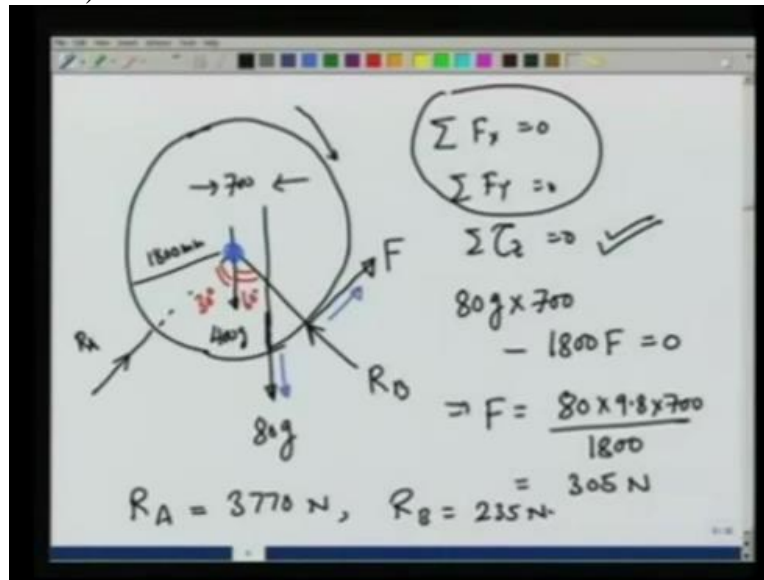 → 700 ←
1800mm
30°
60°
400g
80g
R_A
R_B
F
Σ F_x = 0
Σ F_Y = 0
Σ τ_z = 0 ✓
80g × 700
− 1800F = 0
⇒ F = 80 × 9.8 × 700
1800
= 305 N
R_A = 3770 N, R_B = 235 N.